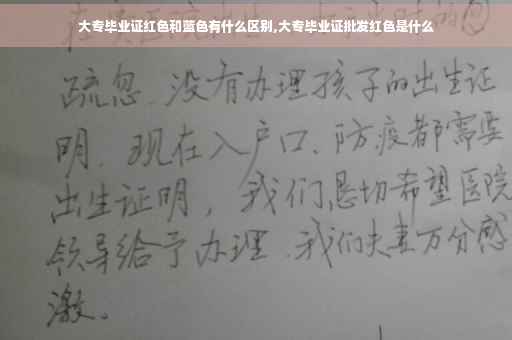 大专毕业证红色和蓝色有什么区别,大专毕业证批发红色是什么
疏忽.没有办理孩子的出生证
明.现在入户口、防疫都需要
出生证明，我们恳切希望医院
领导给予办理.我们夫妻万分感
激。